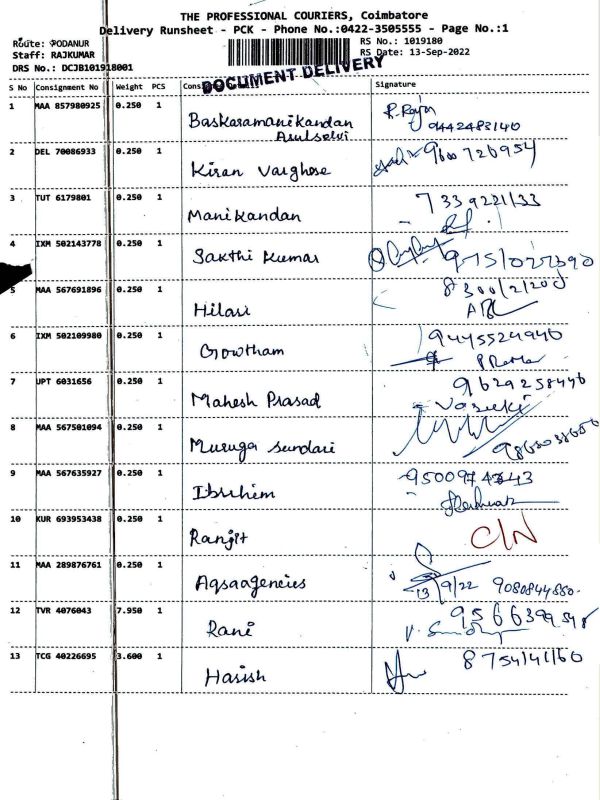 THE PROFESSIONAL COURIERS, Coimbatore
Delivery Runsheet - PCK - Phone No.:0422-3505555 - Page No.:1
Route: PODANUR
RS No.: 1019180
Staff: RAJKUMAR
RS Date: 13-Sep-2022
DRS No.: DCJB101918001
DOCUMENT DELIVERY
S No Consignment No Weight PCS Signature
1 MAA 857980925 0.250 1 Baskaramanikandan
Arulselvi 9442483140
2 DEL 70086933 0.250 1 Kiran Varghese 9600726954
3 TUT 6179801 0.250 1 Manikandan 7339221133
4 IXM 502143778 0.250 1 Sakthi Kumar
5 MAA 567691896 0.250 1 Hilari
6 IXM 502109980 0.250 1 Gowtham 9445524940
7 UPT 6031656 0.250 1 Mahesh Prasad 9629258446
Vasuki
8 MAA 567501094 0.250 1 Muruga sundari
9 MAA 567635927 0.250 1 Ibrihim
10 KUR 693953438 0.250 1 Ranjit C/N
11 MAA 289876761 0.250 1 Aqsaagencies 13/9/22 9080844880
12 TVR 4076043 7.950 1 Rani
13 TCG 40226695 3.600 1 Harish 8754141160